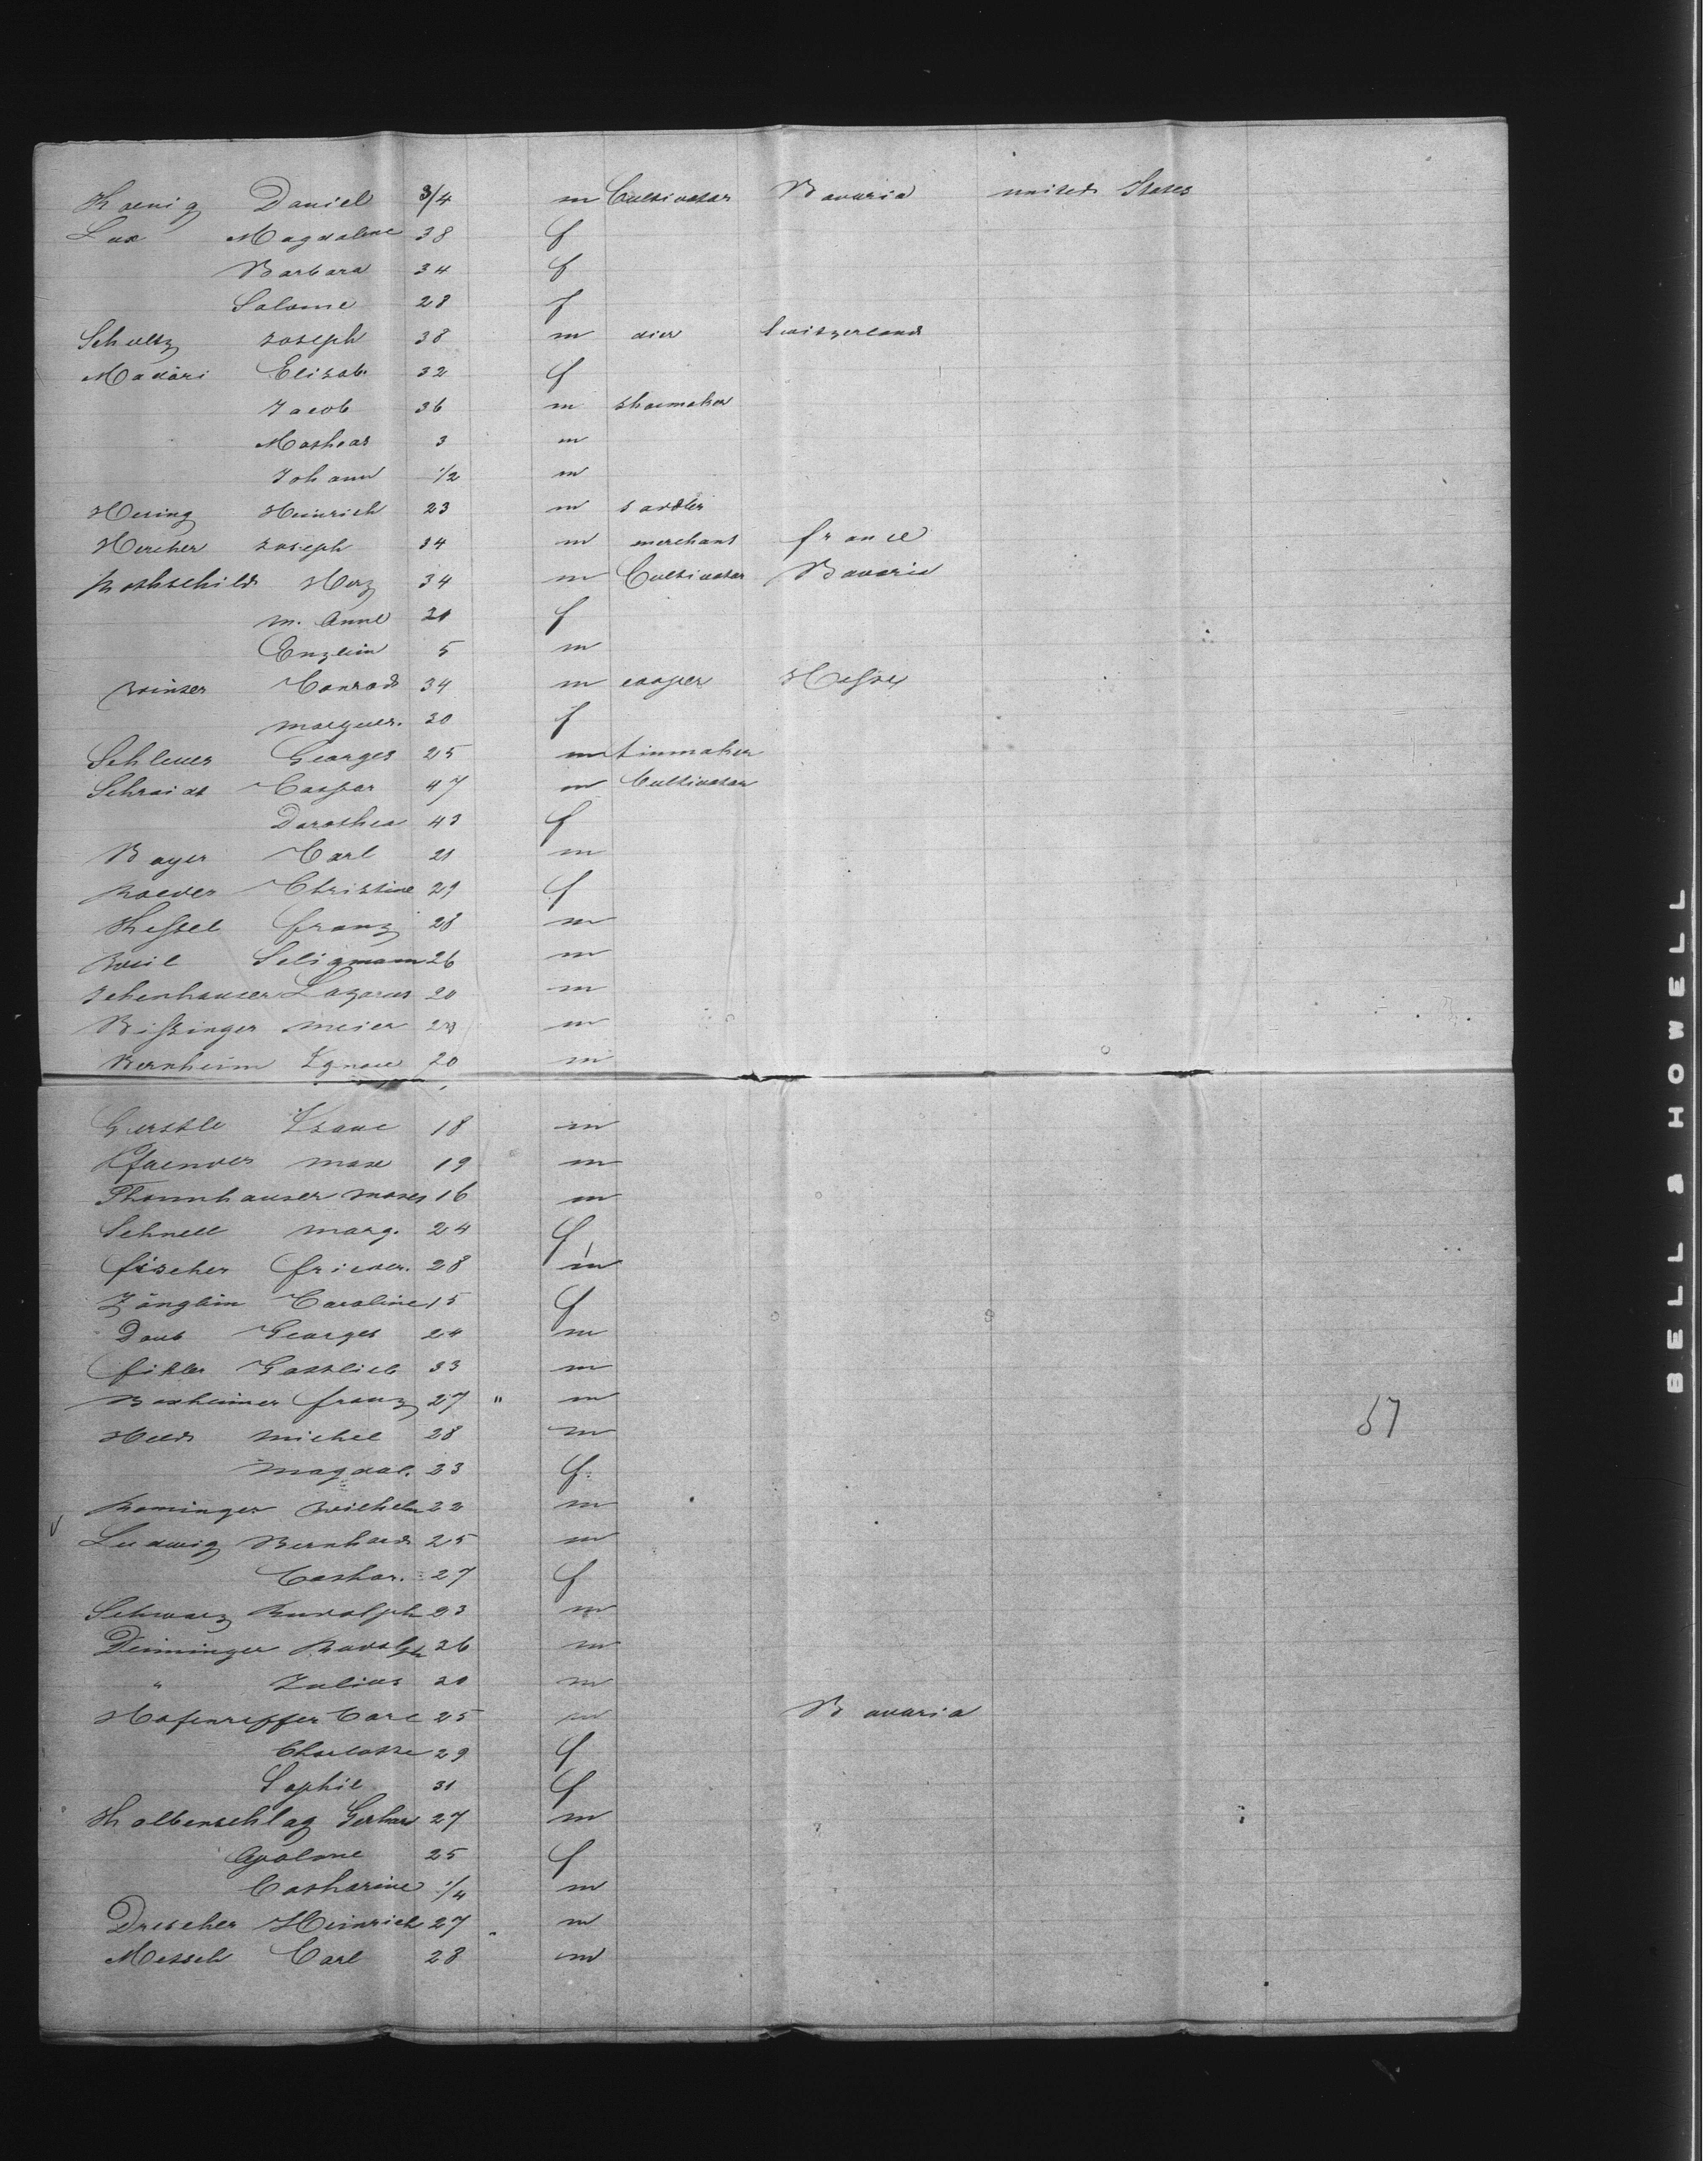 Koenig Daniel 3/4 m Cultivator Bavaria united States
Lux Magdalene 38 f
Barbara 34 f
Salome 28 f
Schultz Joseph 38 m dier Switzerland
Madöri Elisab. 32 f
Jacob 36 m shoemaker
Matheas 3 m
Johann 1/2 m
Hering Heinrich 23 m sardler
Hercher Joseph 34 m merchant france
Rothschild Herz 34 m Cultivator Bavaria
m. Anne f
Enzlein 5 m
Winter Conrad 34 m cooper Hesse
marguer. 30 f
Schleuer Georges 25 m tinmaker
Schmidt Caspar 47 m Cultivator
Dorothea 43 f
Bayer Carl 21 m
Roeder Christine 29 f
Hessel franz 28 m
Weil Seligmann 26 m
Ichenhauser Lazarus 20 m
Bissinger meier m
Bernheim Ignace 20 m
Gerstle Isaac 18 m
Pfaender max 19 m
Thannhauser moses 16 m
Schnell marg. 24 f
fischer frieder. 28 m
Zänglein Caroline 15 f
Daub Georges 24 m
fikler Gottlieb 33 m
Boxheimer franz 27 " m
Held michel 28 m
magdal. 23 f
Rominger Wilhelm 22 m
v
Ludwig Bernhard 25 m
Cathar. 27 f
Schwarz Rudolph 23 m
Deininger Rudolph 26 m
" Julius 20 m
Hafenreffer Carl 25 m Bavaria
Charlotte 29 f
Sophie 31 f
Halbenschlag Gerhard 27 m
Apolone 25 f
Catharine 1/4 m
Drescher Heinrich 27 m
Metsch Carl 28 m
57
BELL & HOWELL